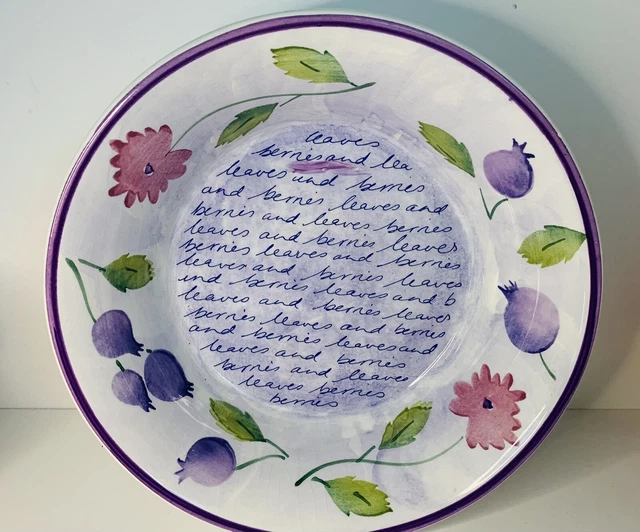 leaves
berries and lea
leaves and berries
and berries leaves and
berries and leaves berries
leaves and berries leaves
berries leaves and berries
leaves and berries leaves
and berries leaves and b
leaves and berries leaves
berries leaves and berries
and berries leaves and
leaves and berries
berries and leaves
leaves berries
berries